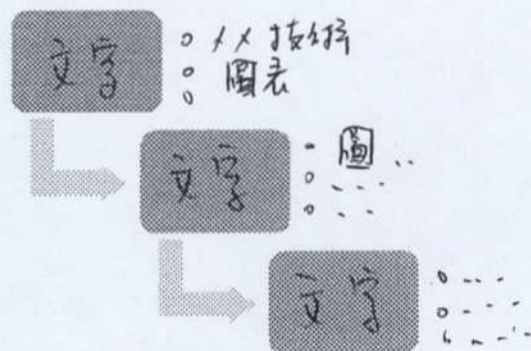 文字
XX技術
圖表
文字
圖
文字